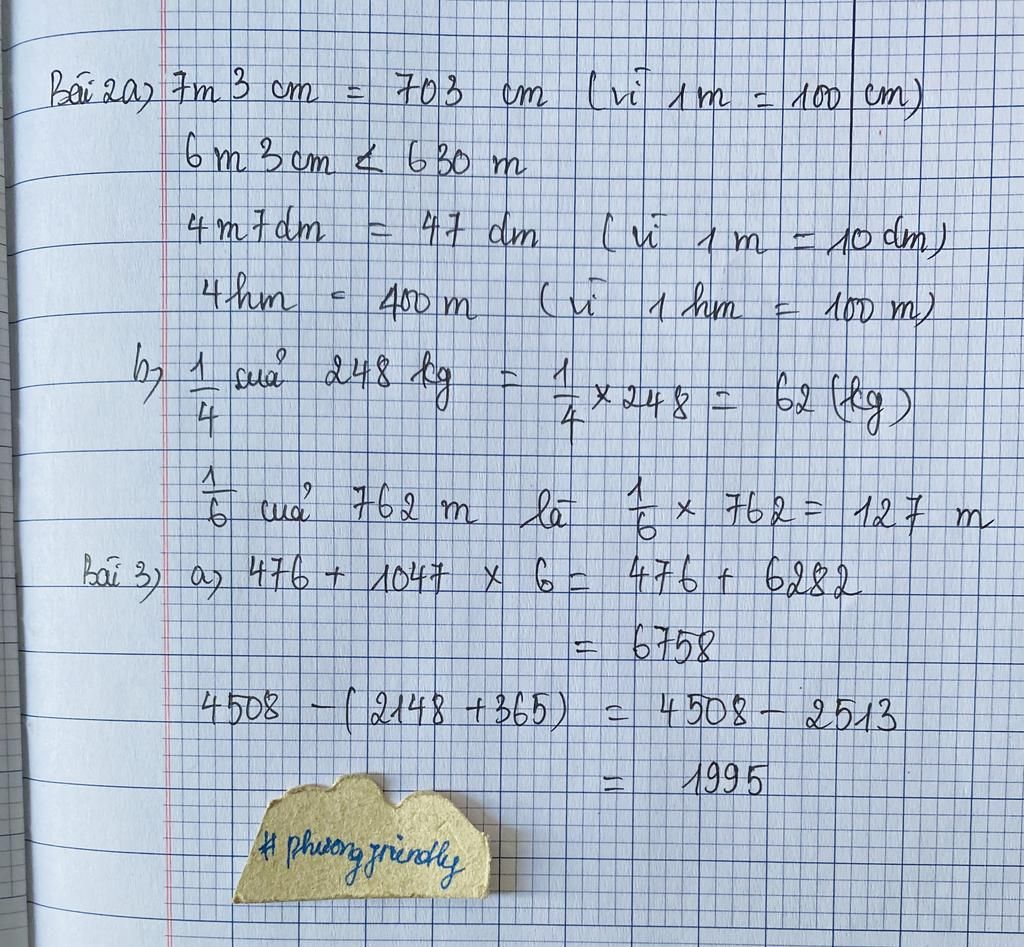 Bài 2a) 7m 3 cm = 703 cm (vì 1m = 100 cm)
6m 3cm < 630 m
4m7dm = 47 dm (vì 1m = 10 dm)
4hm = 400 m (vì 1 hm = 100 m)
b) 1/4 của 248 kg = 1/4 × 248 = 62 (kg)
1/6 của 762 m là 1/6 × 762 = 127 m
Bài 3) a) 476 + 1047 × 6 = 476 + 6282
= 6758
4508 - (2148 + 365) = 4508 - 2513
= 1995
# phuongfriendly